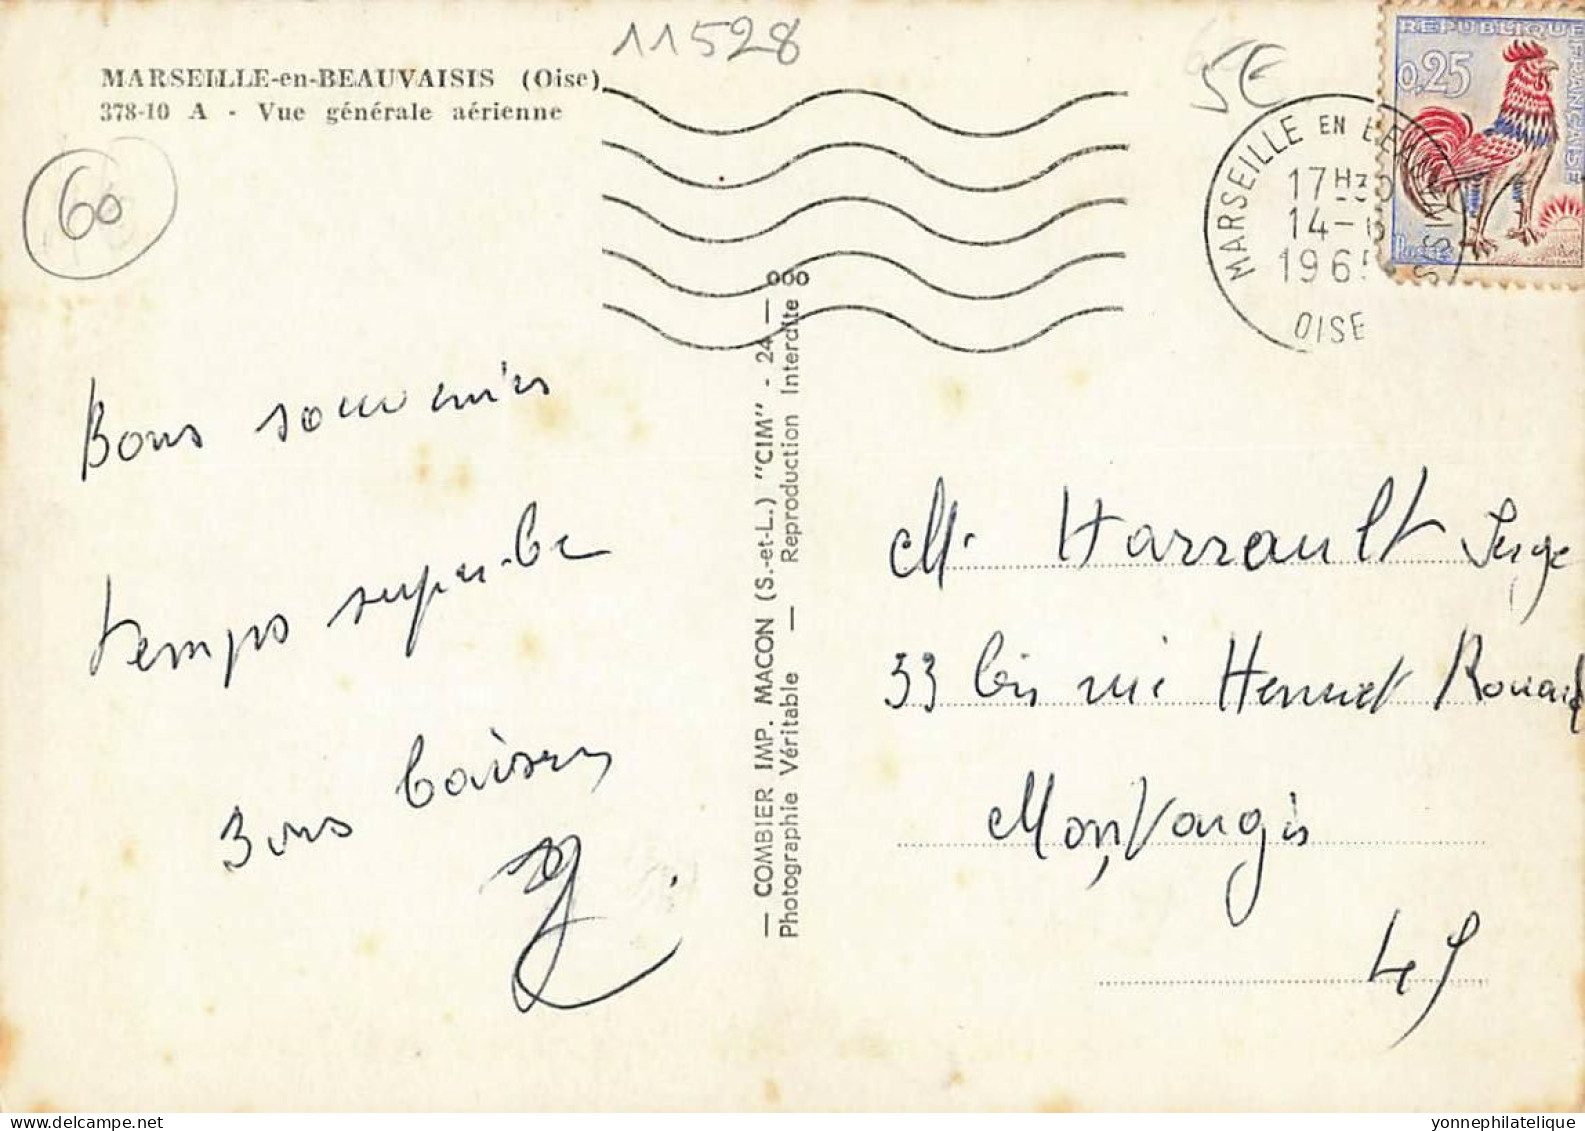 11528
5€
MARSEILLE-en-BEAUVAISIS (Oise)
378-10 A - Vue générale aérienne
60
REPUBLIQUE FRANÇAISE
0,25
Postes
MARSEILLE EN BEAUVAISIS
17H30
14-6
1965
OISE
Bons souvenirs
temps superbe
Bons baisers
— COMBIER IMP. MACON (S.-et-L.) "CIM" - 24 — ooo
Photographie Véritable — Reproduction Interdite
Mr Harrault Serge
33 bis rue Henriet Rouard
Montargis
45
yonnephilatelique